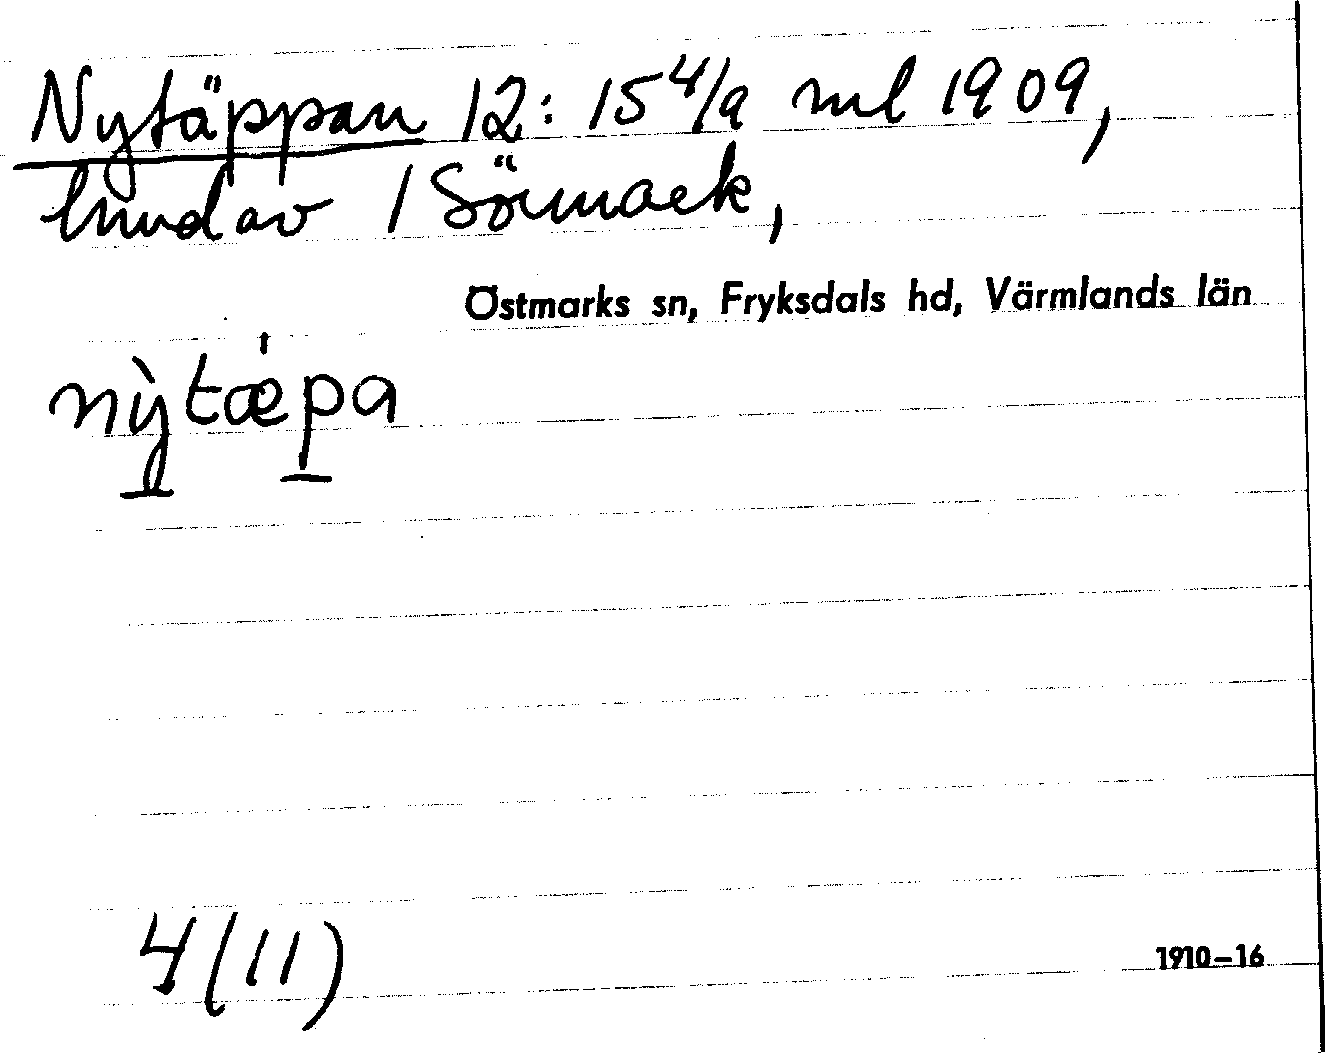 Nytäppan 12:15 4/9 ml 1909,
hmdav 1 Sörmark,
Östmarks sn, Fryksdals hd, Värmlands län
nỳtǽpa
4(11)
1910–16